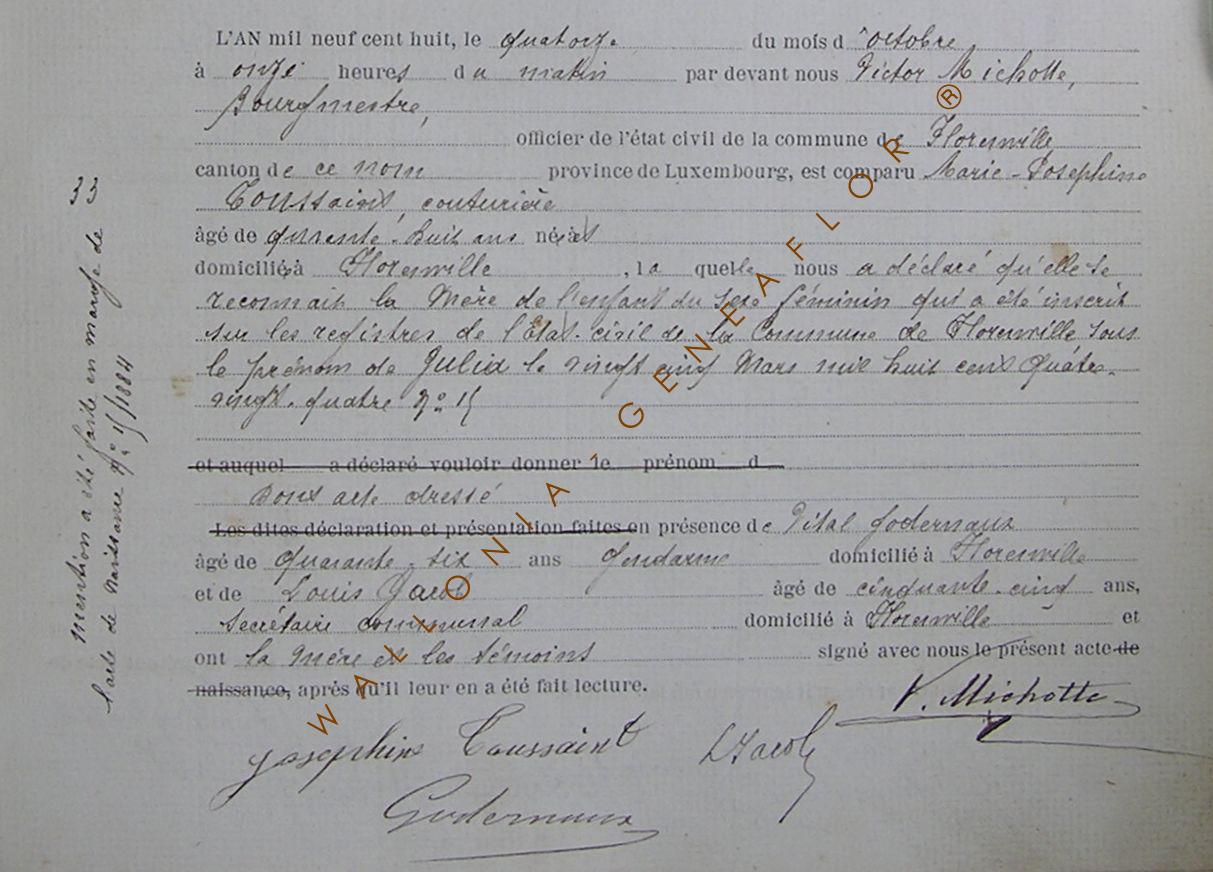 L'AN mil neuf cent huit, le quatorze du mois d'octobre
à onze heures du matin par devant nous Victor Michotte,
Bourgmestre,
officier de l'état civil de la commune de Florenville
canton de ce nom province de Luxembourg, est comparu Marie-Josephine
Toussaint, couturière
âgé de quarante-huit ans né à et
domiciliée à Florenville, la quelle nous a déclaré qu'elle se
reconnait la Mère de l'enfant du sexe féminin qui a été inscrit
sur les registres de l'Etat-civil de la Commune de Florenville sous
le prénom de Julia le vingt cinq Mars mil huit cent quatre-
vingt-quatre No 15
et auquel a déclaré vouloir donner le prénom d
Dont acte dressé
Les dites déclaration et présentation faites en présence de Vital Godernaux
âgé de quarante-six ans gendarme domicilié à Florenville
et de Louis Jacob âgé de cinquante-cinq ans,
Secrétaire communal domicilié à Florenville et
ont la Mère et les témoins signé avec nous le présent acte de
naissance, après qu'il leur en a été fait lecture.
V. Michotte
Josephine Toussaint LJacob
Godernaux
33
Mention a été faite en marge de
l'acte de naissance No 15/1884
WALLONIA-GENEAFLOR®